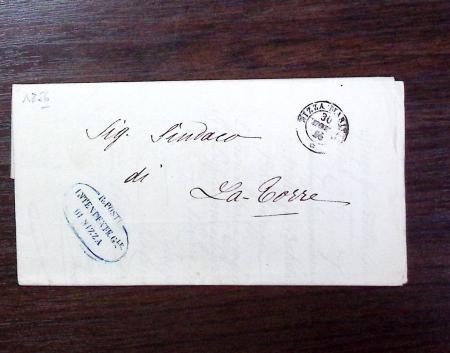 1856
NIZZA MARIT
30
56
Sig. Sindaco
di
La-Torre
R. POSTE
INTENDENTE G.LE
DI NIZZA